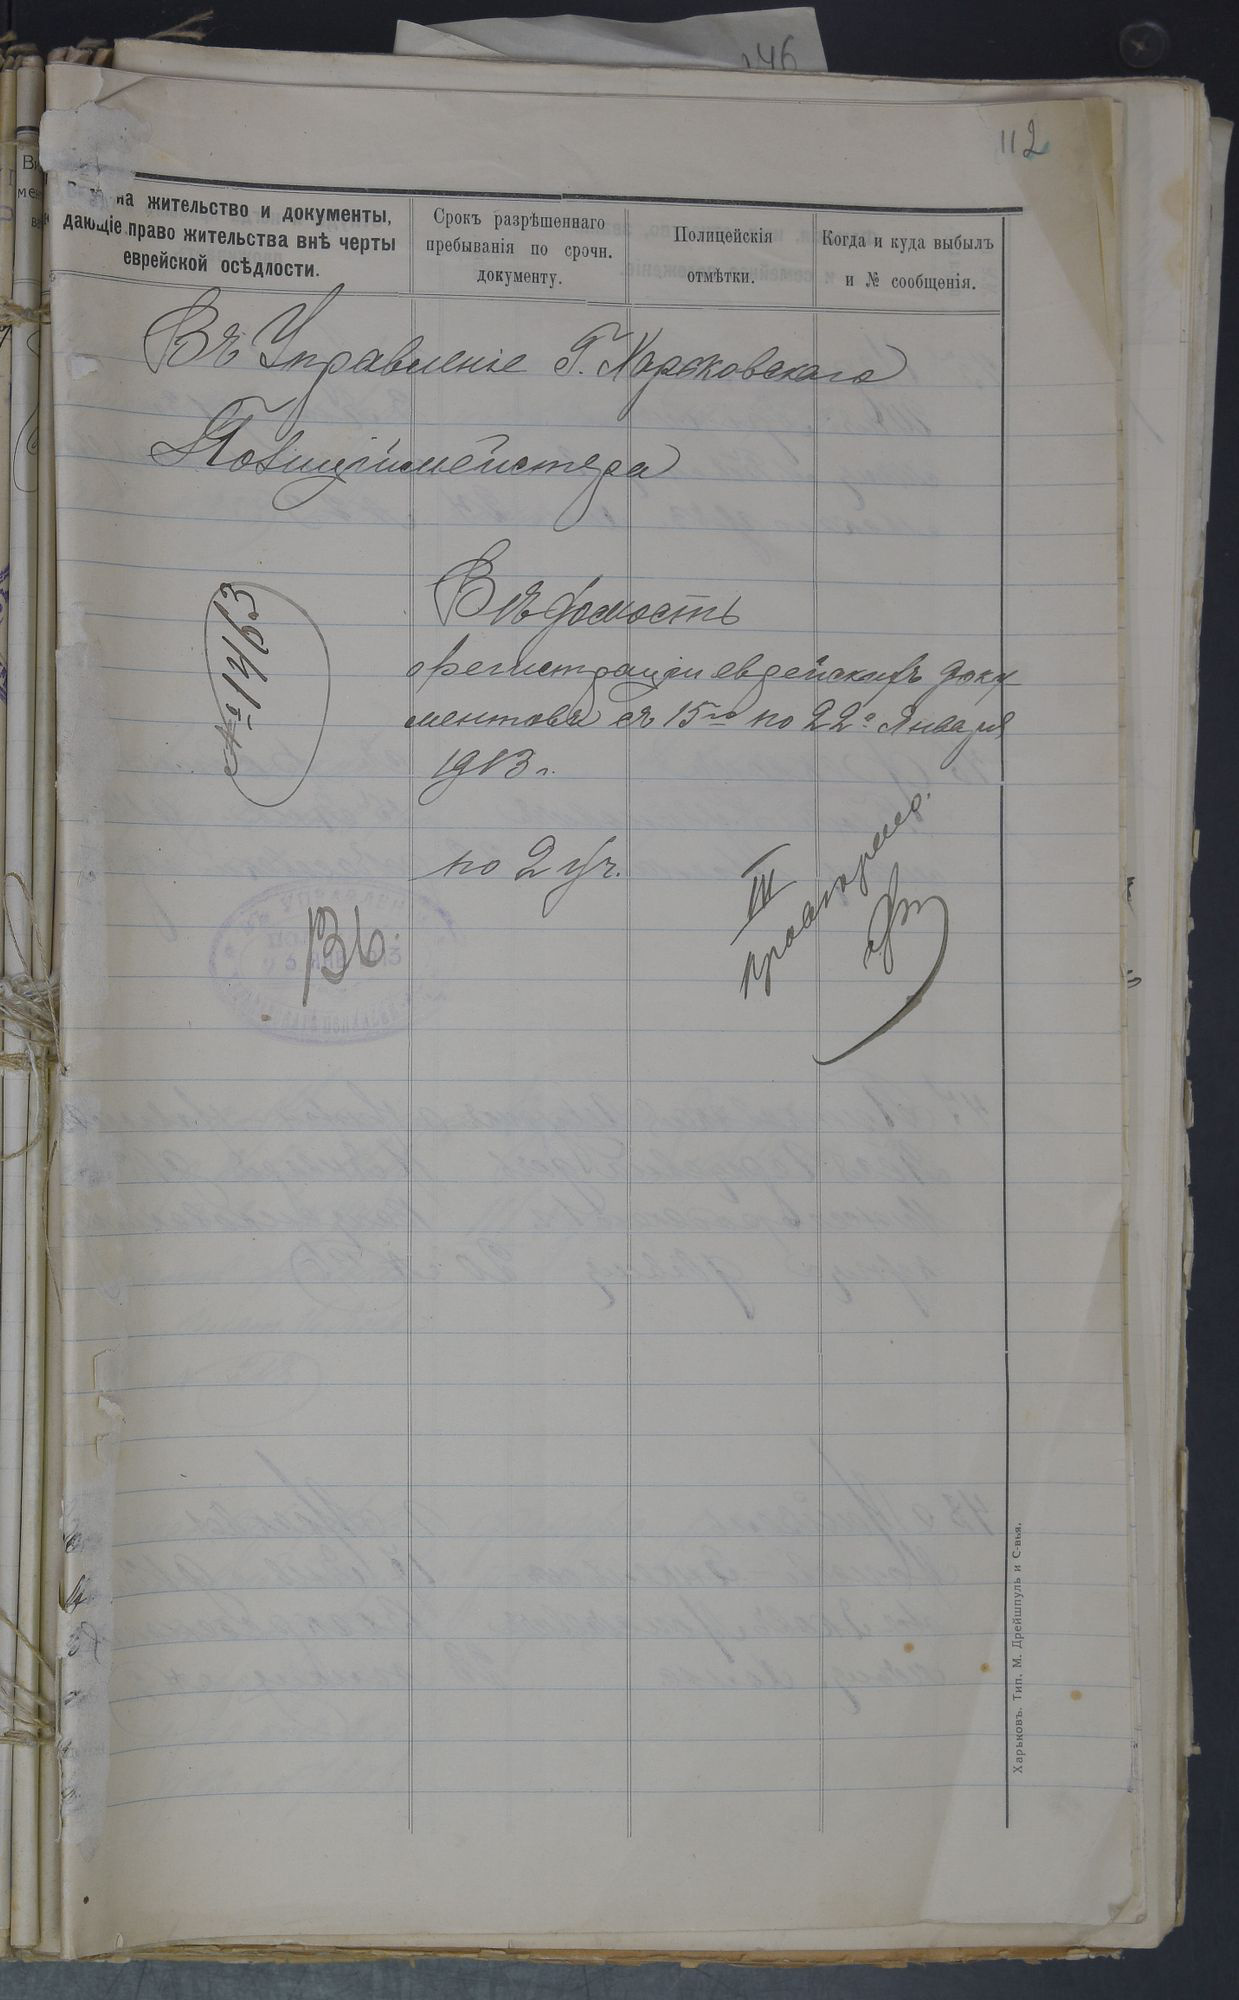 146
112
на жительство и документы,
дающіе право жительства внѣ черты
еврейской осѣдлости.
Срокъ разрѣшеннаго
пребыванія по срочн.
документу.
Полицейскія
отмѣтки.
Когда и куда выбылъ
и № сообщенія.
Въ Управленіе Г. Харьковскаго
Полиціймейстера
Вѣдомость
о регистраціи еврейскихъ доку
ментовъ съ 15го по 22е Января
1913 г.
по 2 уч.
III
136.
Харьковъ. Тип. М. Дрейшпуль и С-вья.